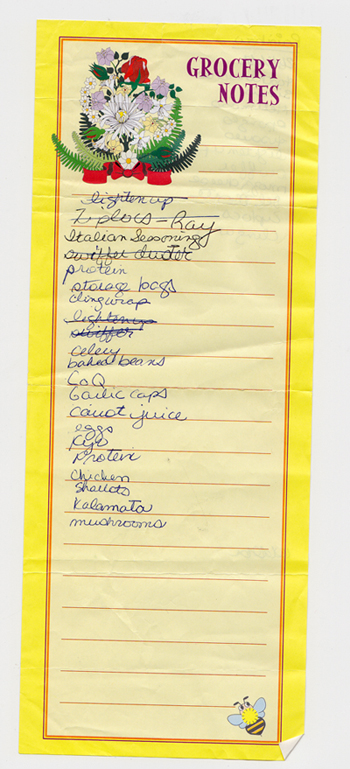 GROCERY
NOTES
lighten up
Ziplocs - Ray
Italian Seasoning
swiffer duster
protein
storage bags
cling wrap
lighten up
swiffer
celery
baked beans
CoQ
Garlic caps
carrot juice
eggs
Protein
Chicken
Shallots
Kalamata
mushrooms